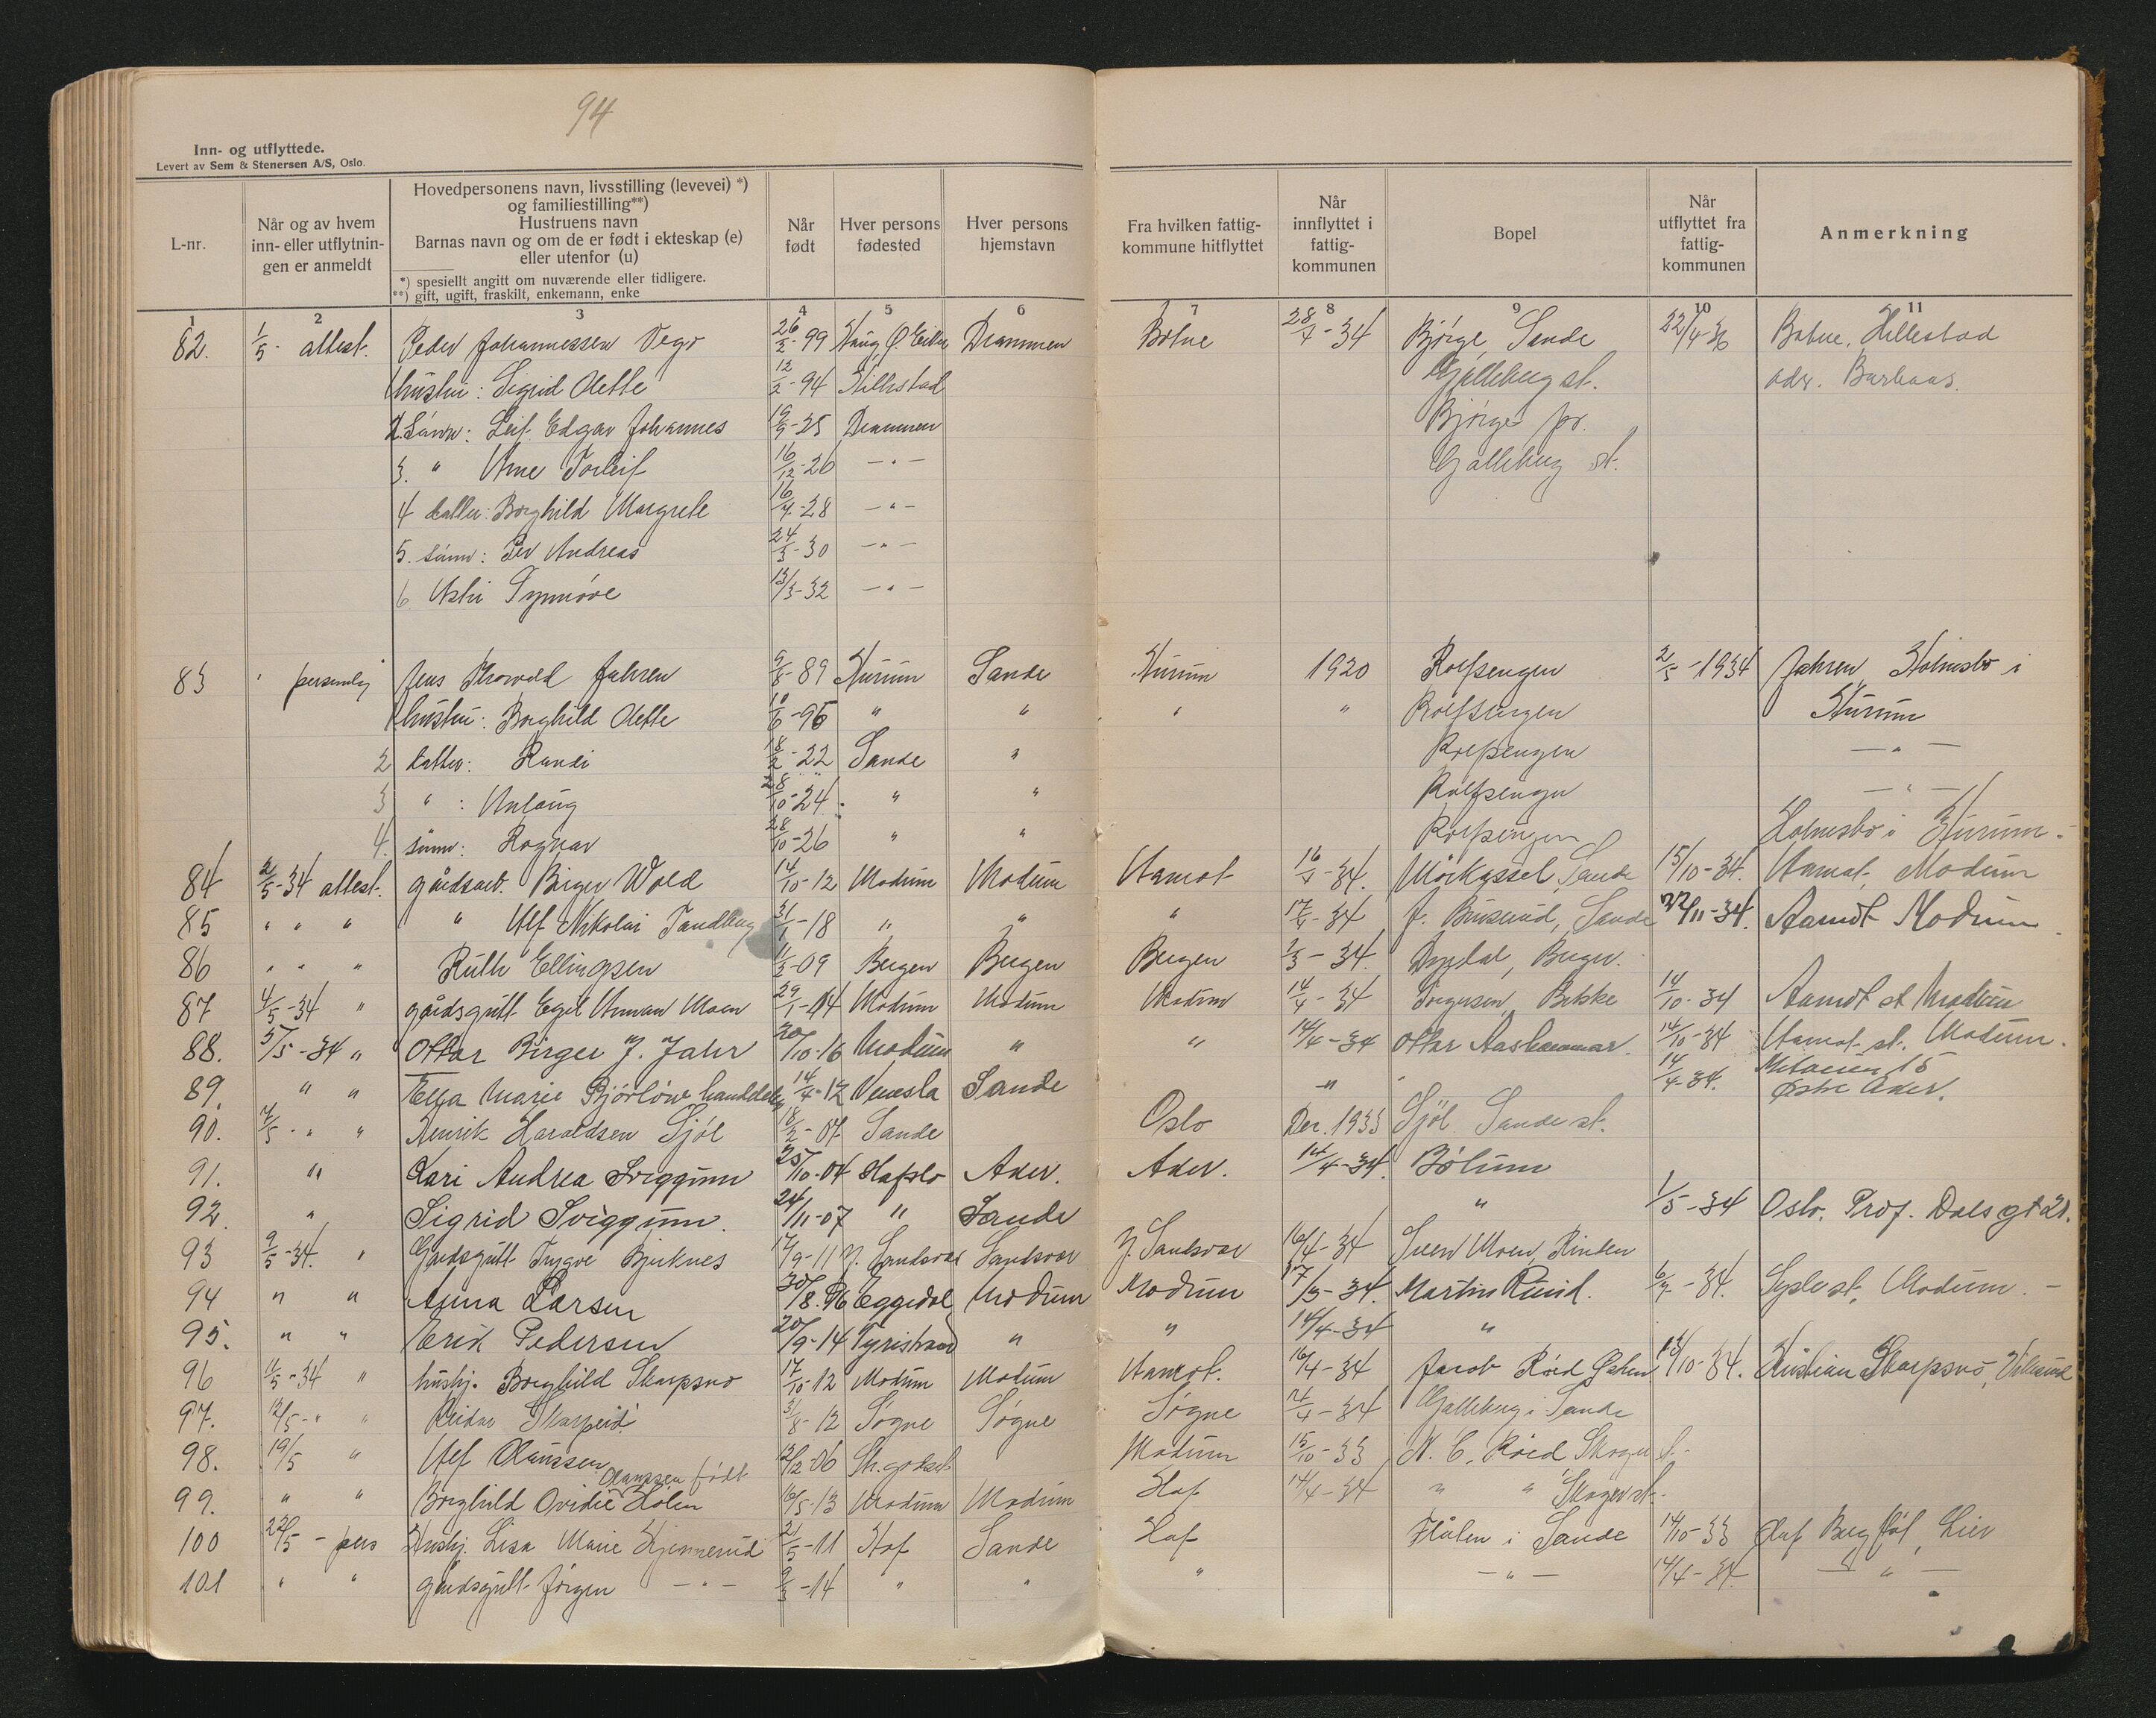 94
Inn- og utflyttede.
Levert av Sem & Stenersen A/S, Oslo.
L-nr.
Når og av hvem inn- eller utflytnin- gen er anmeldt
Hovedpersonens navn, livsstilling (levevei) *) og familiestilling**) Hustruens navn Barnas navn og om de er født i ekteskap (e) eller utenfor (u)
*) spesiellt angitt om nuværende eller tidligere. **) gift, ugift, fraskilt, enkemann, enke
Når født
Hver persons fødested
Hver persons hjemstavn
Fra hvilken fattig- kommune hitflyttet
Når innflyttet i fattig- kommunen
Bopel
Når utflyttet fra fattig- kommunen
Anmerkning
1 2 3 4 5 6 7 8 9 10 11
82. 1/5 - attest. Peder Johannessen Vego 26/2-99 Haug, Ø. Eiker Drammen Botne 28/4-34 Bjørge Sande 22/4-36 Botne, Hillestad
1 hustru: Sigrid Olette 12/2-94 Hillestad Galleberg st. adr. Barhaas.
2. Sønn: Leif Edgar Johannes 19/9-25 Drammen Bjørge pr.
3. " Arne Torleif 16/12-26 -"- Galleberg st.
4 datter: Borghild Margrete 16/4-28 -"-
5. sønn: Per Andreas 24/3-30 -"-
6 Synnøve 13/3-32 -"-
83 " personlig Jens Thorvald Jahren 9/8-89 Hurum Sande Hurum 1920 Rolfsengen 2/5-1934 Jahren, Holmsbo i
1 hustru: Borghild Olette 10/6-95 " " " " Rolfsengen Hurum
2 datter: Randi 18/2-22 Sande " Rolfsengen -"-
3 " : Anlaug 28/10-24 " " Rolfsengen -"-
4. sønn: Ragnar 28/10-26 " " Rolfsengen Holmsbo i Hurum.
84 2/5-34 attest. gårdsarb. Birger Wold 14/10-12 Modum Modum Aamot 16/4-34. Mørkassel, Sande 15/10-34. Aamot, Modum
85 " " " " Alf Nikolai Tandberg 31/1-18 " " " 17/4-34 J. Buserud, Sande 22/11-34. Aamot Modum
86 " " " Ruth Ellingsen 11/3-09 Bergen Bergen Bergen 2/3-34. Berger.
87 4/5-34 " gårdsgutt Egil Moen 29/1-14 Modum Modum Modum 14/4-34 Torgersen, Bekke 14/10-34 Aamot st Modum
88. 5/5-34 " Ottar Birger J. Jahr 20/10-16 Modum " " 14/4-34 Ottar Aashammar. 14/10-34 Aamot st. Modum.
89. " " Ella Marie Bjørløw 14/4-12 Vennesla Sande " 14/4-34. 15 Østre Aker.
90. 7/5 - " " Henrik Haraldsen Sjøl 18/2-07 Sande Oslo Des. 1933 Sjøl Sande st.
91. " Kari Andrea Sviggum 25/10-04 Hafslo Aker. Aker. 14/4-34. Bølum
92. " Sigrid Sviggum. 24/11-07 " Sande " 1/5-34 Oslo. Prof. Dals gt 21.
93 9/5-34. " Gårdsgutt Trygve Bjerknes 17/9-11 Y. Sandsvær Sandsvær Y. Sandsvær 16/4-34 Sven Moen, Rinden
94 " " Anna Larsen 30/8.96 Eggedal Modum Modum 17/3-34. Martin Ruud. 6/7-34. Sysle st, Modum. -
95. " " Erik Pedersen 20/9-14 Tyristrand " " 14/4-34 "
96 11/5-34 " hushj. Borghild Skarpsno 17/10-12 Modum Modum Aamot. 16/4-34 Jacob Røed Østen 13/10-34. Kristian Skarpsno, Vikersund
97. 12/5-" " Reidar 31/8-12 Søgne Søgne Søgne 12/4-34 Galleberg i Sande
98. 19/5 " Alf Clausen 13/12-06 Str.godset Modum 15/10-33 N. C. Røed Skoger st.
99. " " Borghild Ovidie Clausen født Holen 16/5-13 Modum Modum Hof 14/4-34 " " Skoger st.
100 22/5 - pers Hushj. Lisa Marie Hjemmerud 21/5-11 Hof Sande Hof Hølen i Sande 14/10-33 Olaf Bergfløt, Lier
101 " " gårdsgutt Jørgen -"- 9/3-14 " " " -"- 14/4-34 -"-